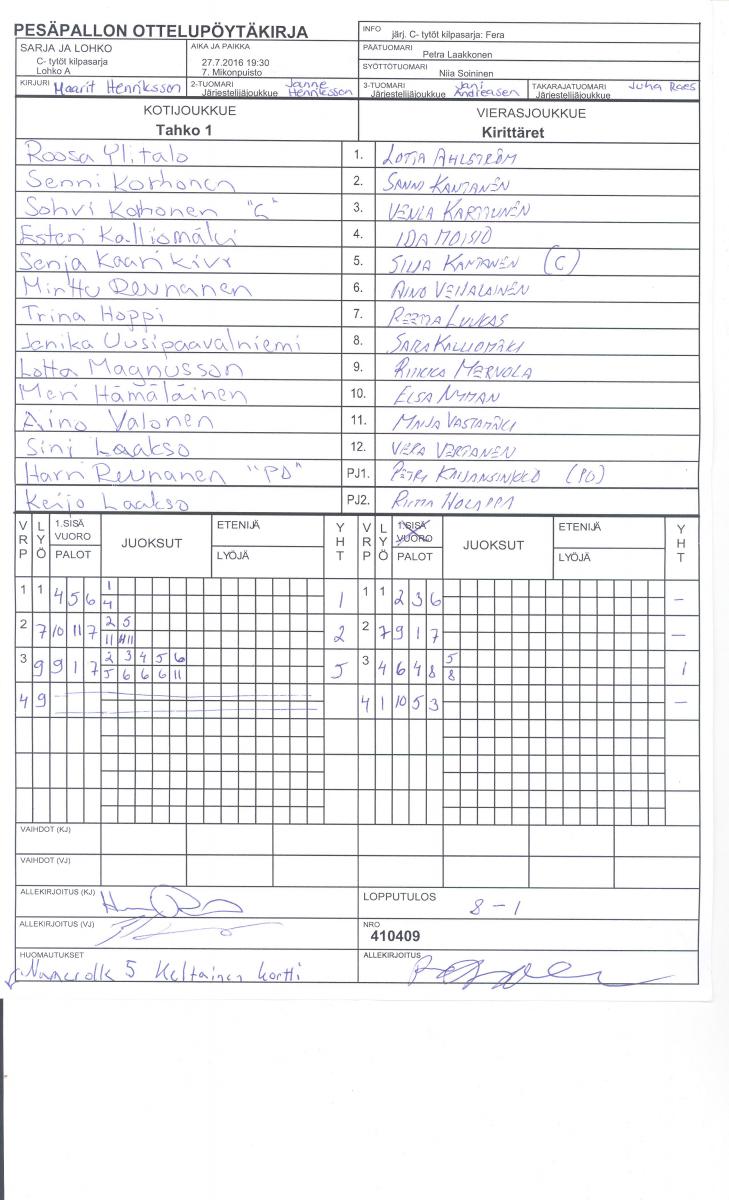 PESÄPALLON OTTELUPÖYTÄKIRJA
INFO järj. C- tytöt kilpasarja: Fera
SARJA JA LOHKO
C- tytöt kilpasarja
Lohko A
AIKA JA PAIKKA
27.7.2016 19:30
7. Mikonpuisto
PÄÄTUOMARI
Petra Laakkonen
SYÖTTÖTUOMARI
Niia Soininen
KIRJURI Maarit Henriksson
2-TUOMARI Janne Henriksson
Järjestelijäjoukkue
3-TUOMARI Jani Andreasen
Järjestelijäjoukkue
TAKARAJATUOMARI Juha Raes
Järjestelijäjoukkue
KOTIJOUKKUE VIERASJOUKKUE
Tahko 1 Kirittäret
Roosa Ylitalo 1. LOTTA AHLSTRÖM
Senni Korhonen 2. SANNI KANTANEN
Sohvi Korhonen "C" 3. VENLA KARTTUNEN
Esteri Kalliomäki 4. IDA MOISIO
Senja Kaarikivi 5. SILJA KANTANEN (C)
Minttu Reunanen 6. AINO VEIJALAINEN
Trina Hoppi 7. REETTA LUUKAS
Janika Uusipaavalniemi 8. SARA KALLIOMÄKI
Lotta Magnusson 9. RIIKKA MERVOLA
Meri Hämäläinen 10. ELSA NYMAN
Aino Valonen 11. MAIJA VASTAMÄKI
Sini Laakso 12. VERA VERTANEN
Harri Reunanen "PD" PJ1. PETRI (PD)
Keijo Laakso PJ2. RIITTA HOLAPPA
VRP LYÖ 1.SISÄ VUORO PALOT JUOKSUT ETENIJÄ LYÖJÄ YHT VRP LYÖ 1.SISÄ VUORO PALOT JUOKSUT ETENIJÄ LYÖJÄ YHT
1 1 4 5 6 1 1 1 1 2 3 6 -
4
2 7 10 11 7 2 5 2 2 7 9 1 7 -
11 11
3 9 9 1 7 2 3 4 5 6 5 3 4 6 4 8 5 1
5 6 6 6 11 8
4 9 4 1 10 5 3 -
VAIHDOT (KJ)
VAIHDOT (VJ)
ALLEKIRJOITUS (KJ)
LOPPUTULOS 8-1
ALLEKIRJOITUS (VJ)
NRO
410409
HUOMAUTUKSET
5 Keltainen kortti
ALLEKIRJOITUS